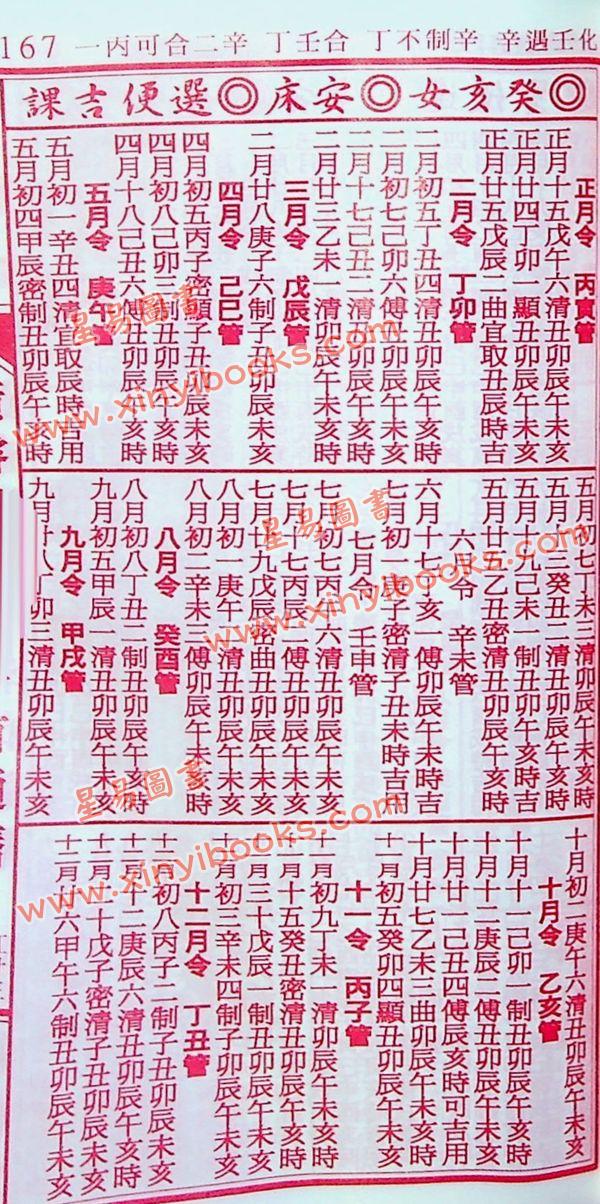 167 一丙可合二辛 丁壬合 丁不制辛 辛遇壬化
◎癸亥女◎安床◎選便吉課
正月令 丙寅管
正月十五戊午六清丑卯辰午亥
正月廿四丁卯一顯丑卯辰未亥
正月廿五戊辰二曲宜取丑辰時吉
二月令 丁卯管
二月初五丁丑四清丑卯辰午亥時
二月初七己卯六傅丑卯辰午亥時
二月十七己丑二清丑卯辰午亥時
二月廿三乙未一清卯辰午亥時
三月令 戊辰管
二月廿八庚子六制子丑卯辰未亥
四月令 己巳管
四月初五丙子密顯子丑卯辰未亥
四月初八己卯三制丑卯辰午亥時
四月十八己丑六傅丑卯辰午亥時
五月令 庚午管
五月初一辛丑四清宜取辰時吉用
五月初四甲辰密制丑卯辰午亥時
五月初七丁未三清卯辰午亥時
五月十三癸丑二清丑卯辰午亥
五月十九己未一制丑卯午亥時
五月廿五乙丑密清丑卯午亥時
六月令 辛未管
六月十七丁亥一傅卯辰午未時吉
七月初一庚子密清子丑未時吉用
七月令 壬申管
七月初七丙午六清丑卯午未亥
七月十七丙辰二傅丑卯午亥時
七月十九戊辰密曲丑卯辰午亥
八月初一庚午一清丑卯辰午未亥
八月初二辛未三傅卯辰午未亥時
八月令 癸酉管
八月初八丁丑二制丑卯辰午亥時
九月初五甲辰一清丑卯辰午未亥
九月令 甲戌管
九月廿八丁卯三清丑卯辰午未亥
十月初二庚午六清丑卯辰午未亥
十月令 乙亥管
十月十一己卯一制丑卯辰午亥時
十月十二庚辰二傅丑卯辰午未亥
十月廿一己丑四傅辰亥時可吉用
十月廿七乙未三曲卯辰午亥時
十一月初五癸卯四顯丑卯辰午未亥
十一令 丙子管
十一月初九丁未一清卯辰午未亥
十一月十五癸丑密清丑卯辰午亥時
十一月三十戊辰一制丑卯辰午未亥
十二月初三辛未四制子卯辰午亥時
十二月令 丁丑管
十二月初八丙子二制子丑卯辰未亥
十二月十二庚辰六清丑卯辰午亥時
十二月二十戊子密清子丑卯辰未亥
十二月廿六甲午六制丑卯辰午未亥
星易圖書
www.xinyibooks.com
星易圖書
www.xinyibooks.com
星易圖書
www.xinyibooks.com